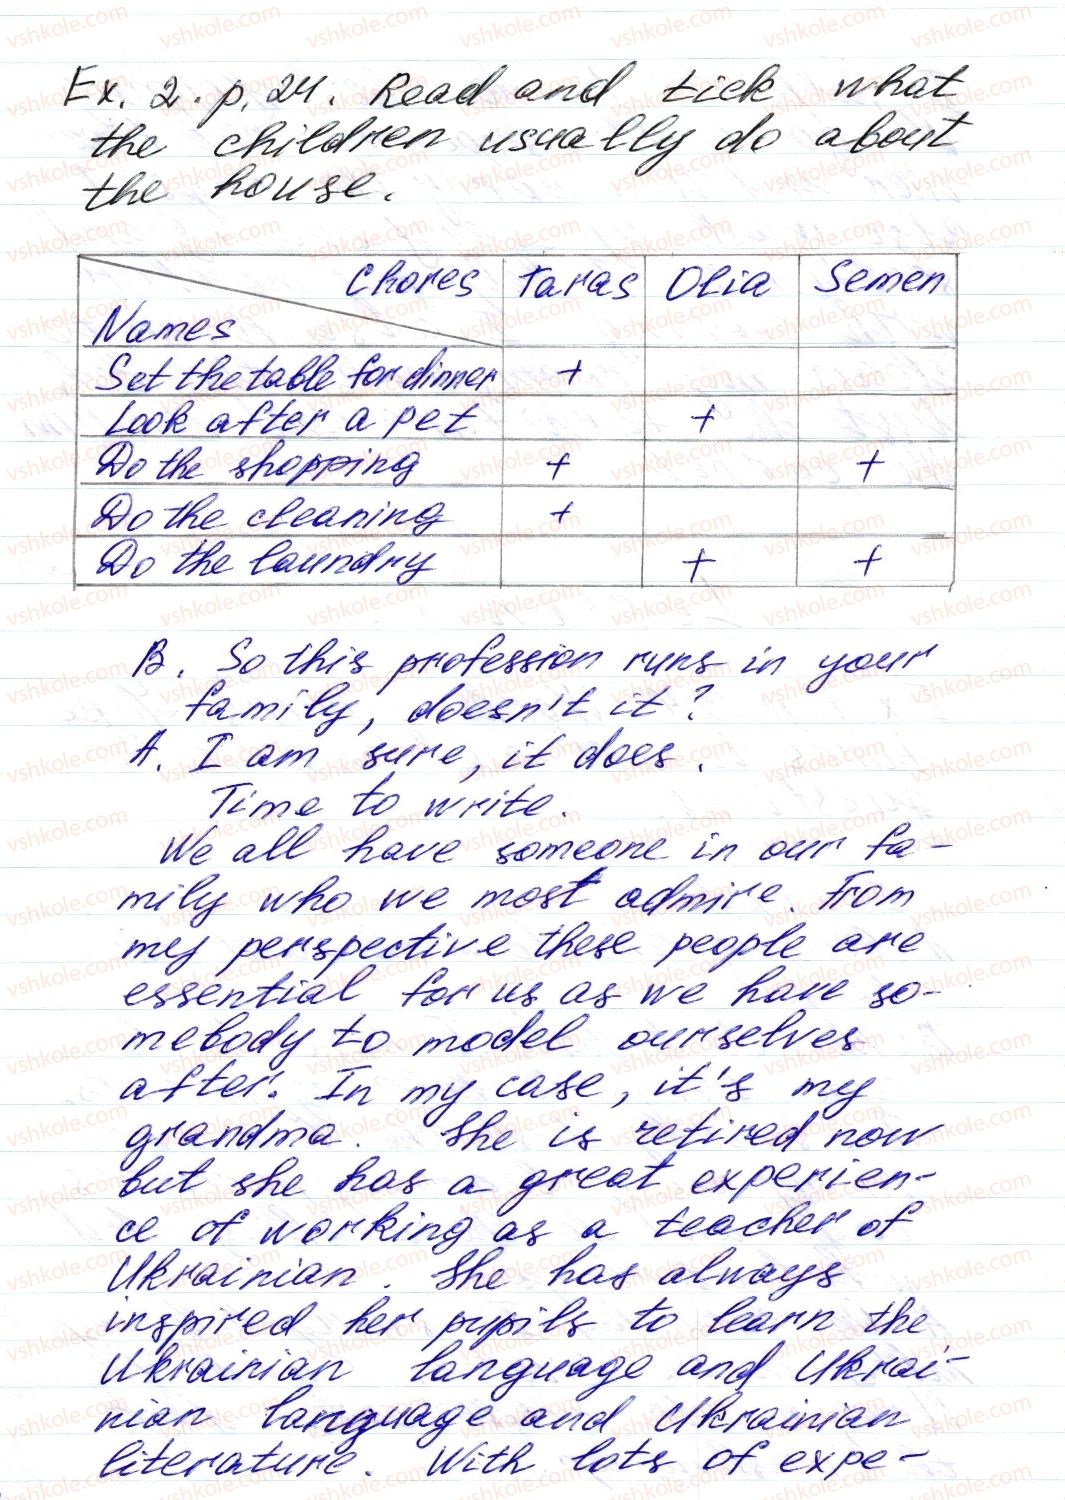 Ex. 2. p. 24. Read and tick what
the children usually do about
the house.
Chores Taras Olia Semen
Names
Set the table for dinner +
Look after a pet +
Do the shopping + +
Do the cleaning +
Do the laundry + +
B. So this profession runs in your
family, doesn't it?
A. I am sure, it does.
Time to write.
We all have someone in our fa-
mily who we most admire. From
my perspective these people are
essential for us as we have so-
mebody to model ourselves
after. In my case, it's my
grandma. She is retired now
but she has a great experien-
ce of working as a teacher of
Ukrainian. She has always
inspired her pupils to learn the
Ukrainian language and Ukrai-
nian language and Ukrainian
literature. With lots of expe-